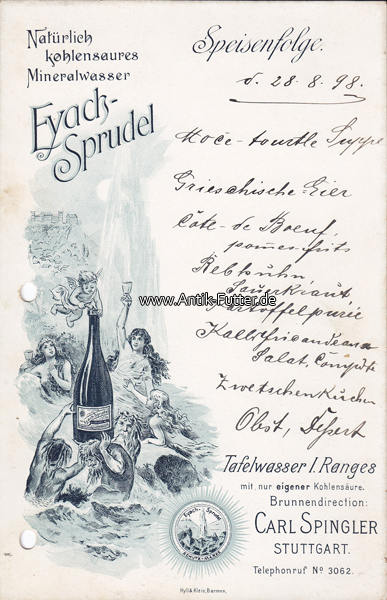 Natürlich
kohlensaures
Mineralwasser
Eyach-
Sprudel
Speisenfolge.
d. 28. 8. 98.
Moce-tourtle Suppe
Grieschische-Eier
Côte-de Boeuf,
pommes-frits
Rebhuhn
Sauerkraut
Kartoffelpurie
www.Antik-Futter.de
Salat, Compote
Zwetschenkuchen
Obst, Dessert
Tafelwasser I. Ranges
mit nur eigener Kohlensäure.
Brunnendirection:
CARL SPINGLER
STUTTGART.
Telephonruf No 3062.
Eyach-Sprudel